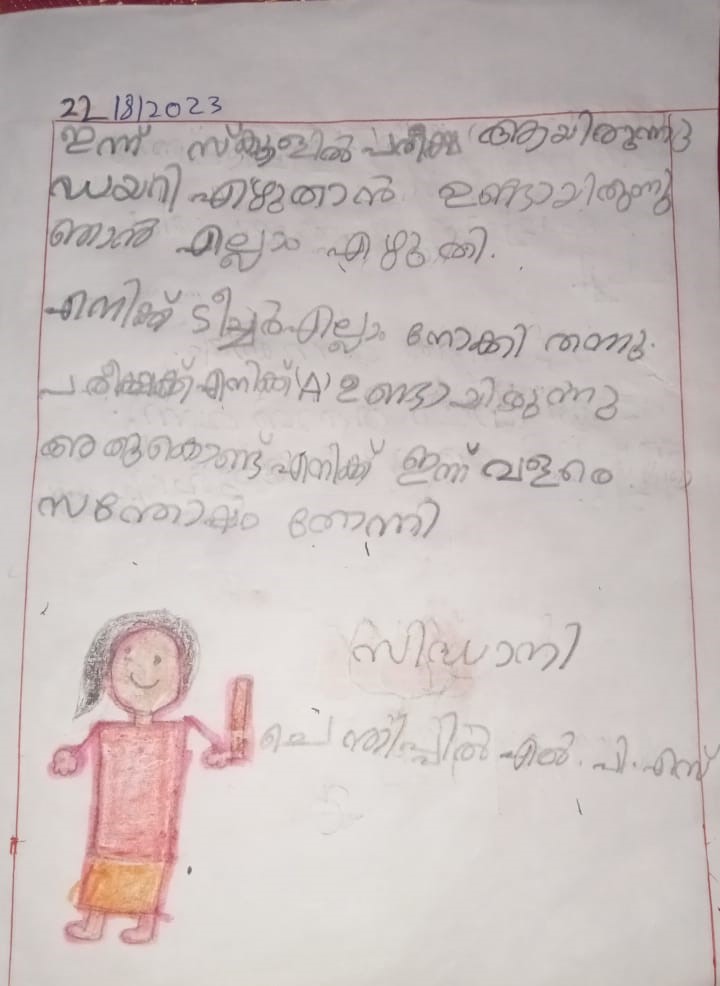 22/8/2023
ഇന്ന് സ്കൂളിൽ പരീക്ഷ ആയിരുന്നു
ഡയറി എഴുതാൻ ഉണ്ടായിരുന്നു
ഞാൻ എല്ലാം എഴുതി.
എനിക്ക് ടീച്ചർ എല്ലാം നോക്കി തന്നു.
പരീക്ഷക്ക് എനിക്ക് 'A' ഉണ്ടായിരുന്നു
അതുകൊണ്ട് എനിക്ക് ഇന്ന് വളരെ
സന്തോഷം തോന്നി
എൽ.പി.എസ്